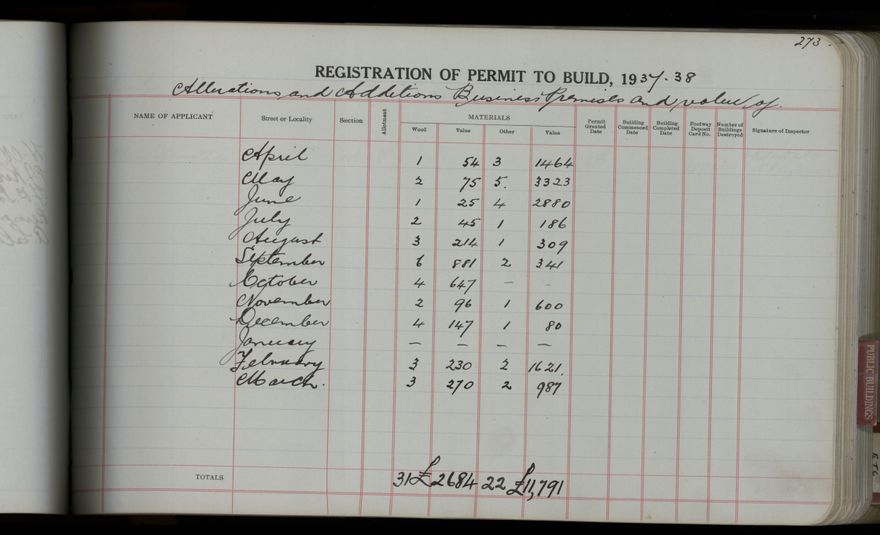 273.
REGISTRATION OF PERMIT TO BUILD, 1937-38
Alterations and Additions Business Premises and value of.
MATERIALS
NAME OF APPLICANT Street or Locality Section Allotment Wood Value Other Value Permit Granted Date Building Commenced Date Building Completed Date Footway Deposit Card No. Number of Buildings Destroyed Signature of Inspector
April 1 54 3 1464
May 2 75 5. 3323
June 1 25 4 2880
July 2 45 1 186
August 3 214 1 309
September 6 881 2 341
October 4 647 — -
November 2 96 1 600
December 4 147 1 80
January — — — —
February 3 230 2 1621.
March. 3 270 2 987
TOTALS 31 £2684 22 £11,791
PUBLIC BUILDINGS